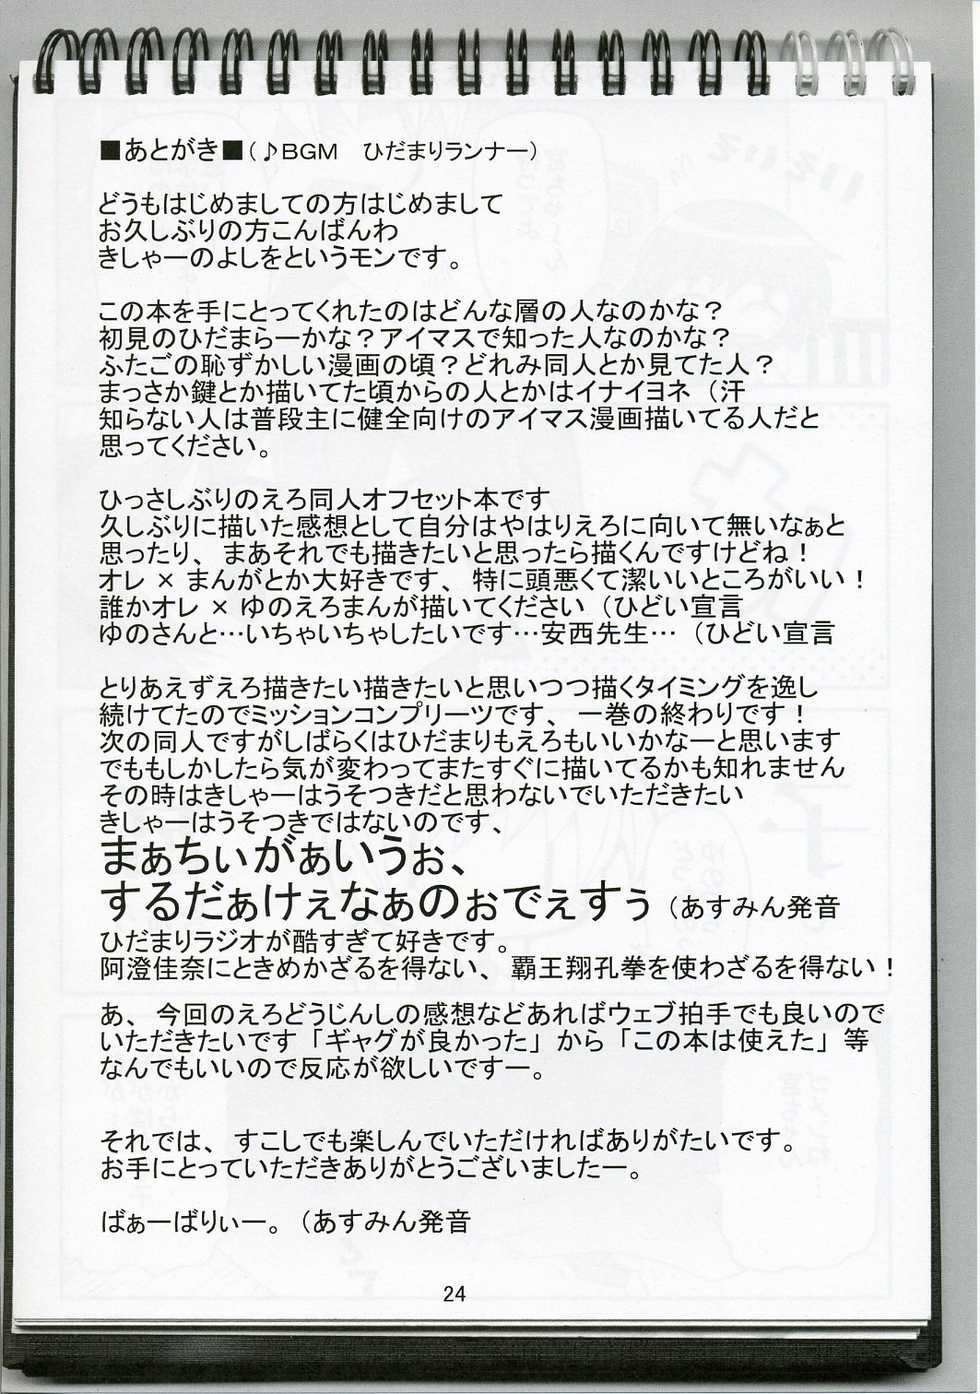 ■あとがき■(♪BGM　ひだまりランナー)
どうもはじめましての方はじめまして
お久しぶりの方こんばんわ
きしゃーのよしをというモンです。
この本を手にとってくれたのはどんな層の人なのかな？
初見のひだまらーかな？アイマスで知った人なのかな？
ふたごの恥ずかしい漫画の頃？どれみ同人とか見てた人？
まっさか鍵とか描いてた頃からの人とかはイナイヨネ（汗
知らない人は普段主に健全向けのアイマス漫画描いてる人だと
思ってください。
ひっさしぶりのえろ同人オフセット本です
久しぶりに描いた感想として自分はやはりえろに向いて無いなぁと
思ったり、まあそれでも描きたいと思ったら描くんですけどね！
オレ×まんがとか大好きです、特に頭悪くて潔いいところがいい！
誰かオレ×ゆのえろまんが描いてください（ひどい宣言
ゆのさんと…いちゃいちゃしたいです…安西先生…（ひどい宣言
とりあえずえろ描きたい描きたいと思いつつ描くタイミングを逸し
続けてたのでミッションコンプリーツです、一巻の終わりです！
次の同人ですがしばらくはひだまりもえろもいいかなーと思います
でももしかしたら気が変わってまたすぐに描いてるかも知れません
その時はきしゃーはうそつきだと思わないでいただきたい
きしゃーはうそつきではないのです、
まぁちぃがぁいうぉ、
するだぁけぇなぁのぉでぇすぅ（あすみん発音
ひだまりラジオが酷すぎて好きです。
阿澄佳奈にときめかざるを得ない、覇王翔孔拳を使わざるを得ない！
あ、今回のえろどうじんしの感想などあればウェブ拍手でも良いので
いただきたいです「ギャグが良かった」から「この本は使えた」等
なんでもいいので反応が欲しいですー。
それでは、すこしでも楽しんでいただければありがたいです。
お手にとっていただきありがとうございましたー。
ばぁーばりぃー。（あすみん発音
24